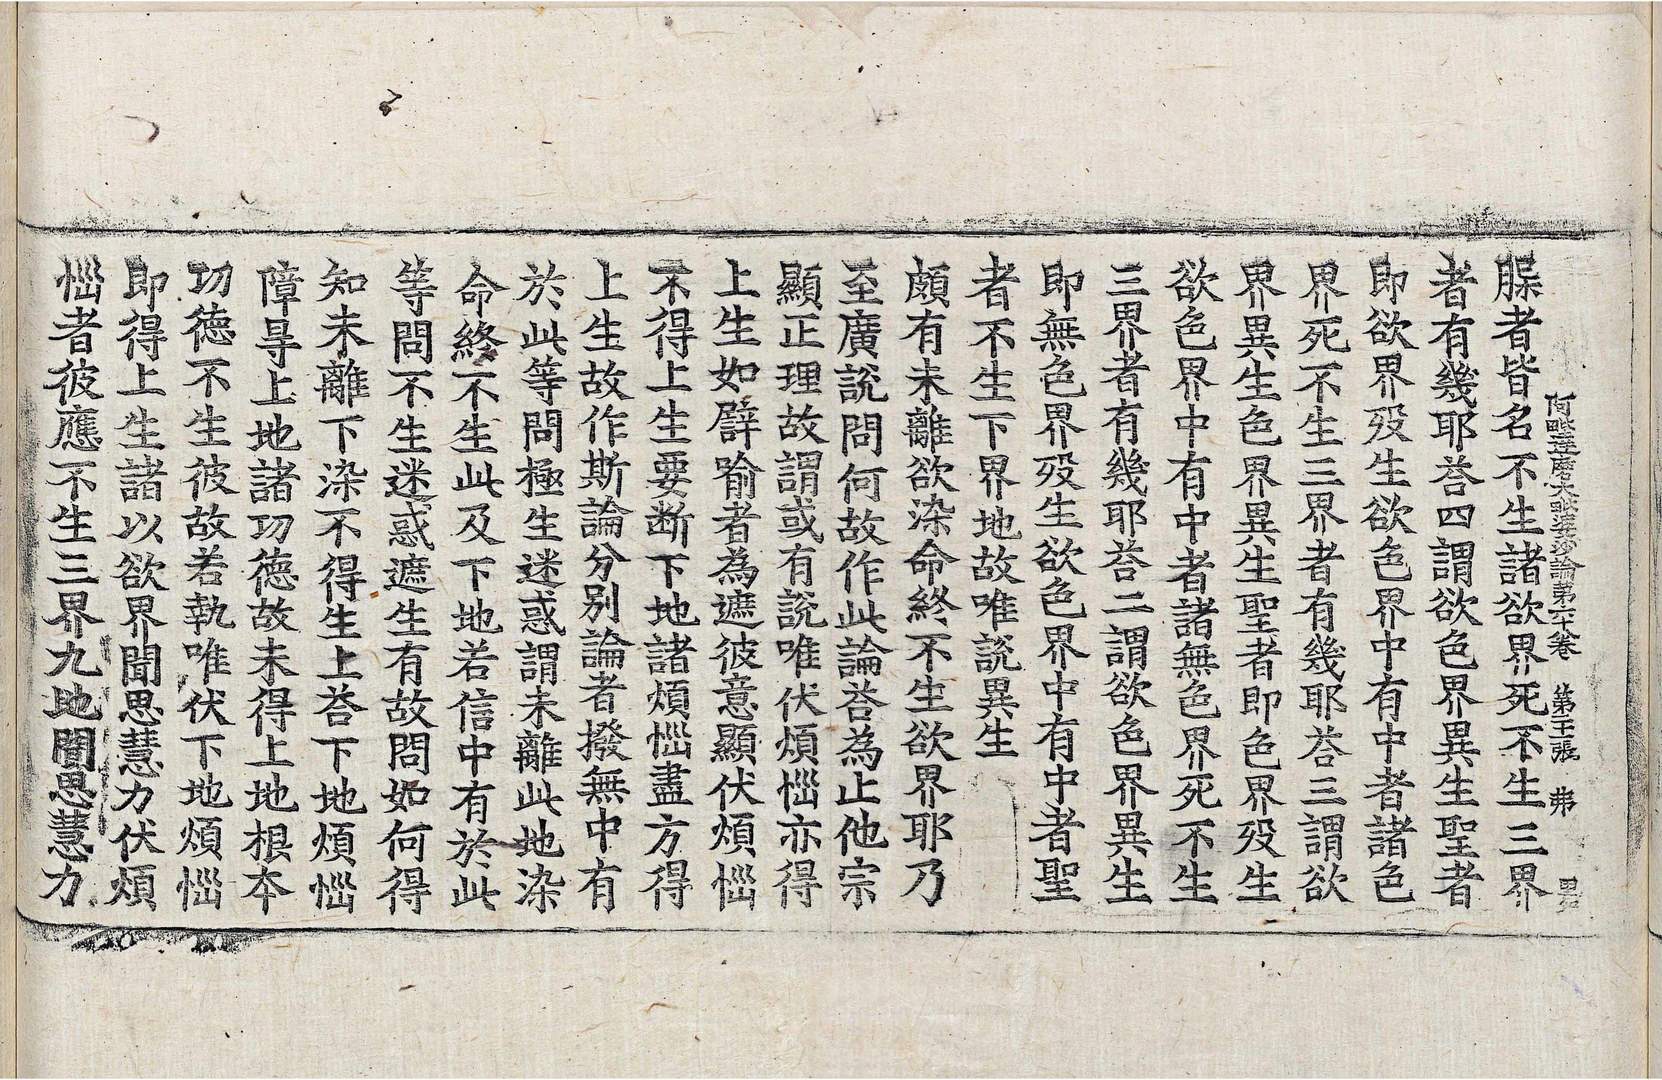 阿毗達磨大毗婆沙論第 卷 第 張 弗
牒者皆名不生諸欲界死不生三界
者有幾耶荅四謂欲色界異生聖者
即欲界歿生欲色界中有中者諸色
界死不生三界者有幾耶荅三謂欲
界異生色界異生聖者即色界歿生
欲色界中有中者諸無色界死不生
三界者有幾耶荅二謂欲色界異生
即無色界歿生欲色界中有中者聖
者不生下界地故唯說異生
頗有未離欲染命終不生欲界耶乃
至廣說問何故作此論荅為止他宗
顯正理故謂或有說唯伏煩惱亦得
上生如譬喻者為遮彼意顯伏煩惱
不得上生要斷下地諸煩惱盡方得
上生故作斯論分別論者撥無中有
於此等問極生迷惑謂未離此地染
命終不生此及下地若信中有於此
等問不生迷惑遮生有故問如何得
知未離下染不得生上荅下地煩惱
障㝵上地諸功德故未得上地根本
功德不生彼故若執唯伏下地煩惱
即得上生諸以欲界聞思慧力伏煩
惱者彼應不生三界九地聞思慧力